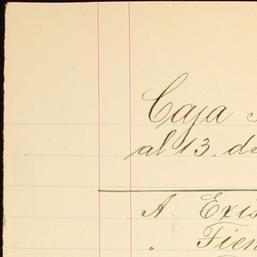 Caja
al 13. de
A. Exis
" Tien